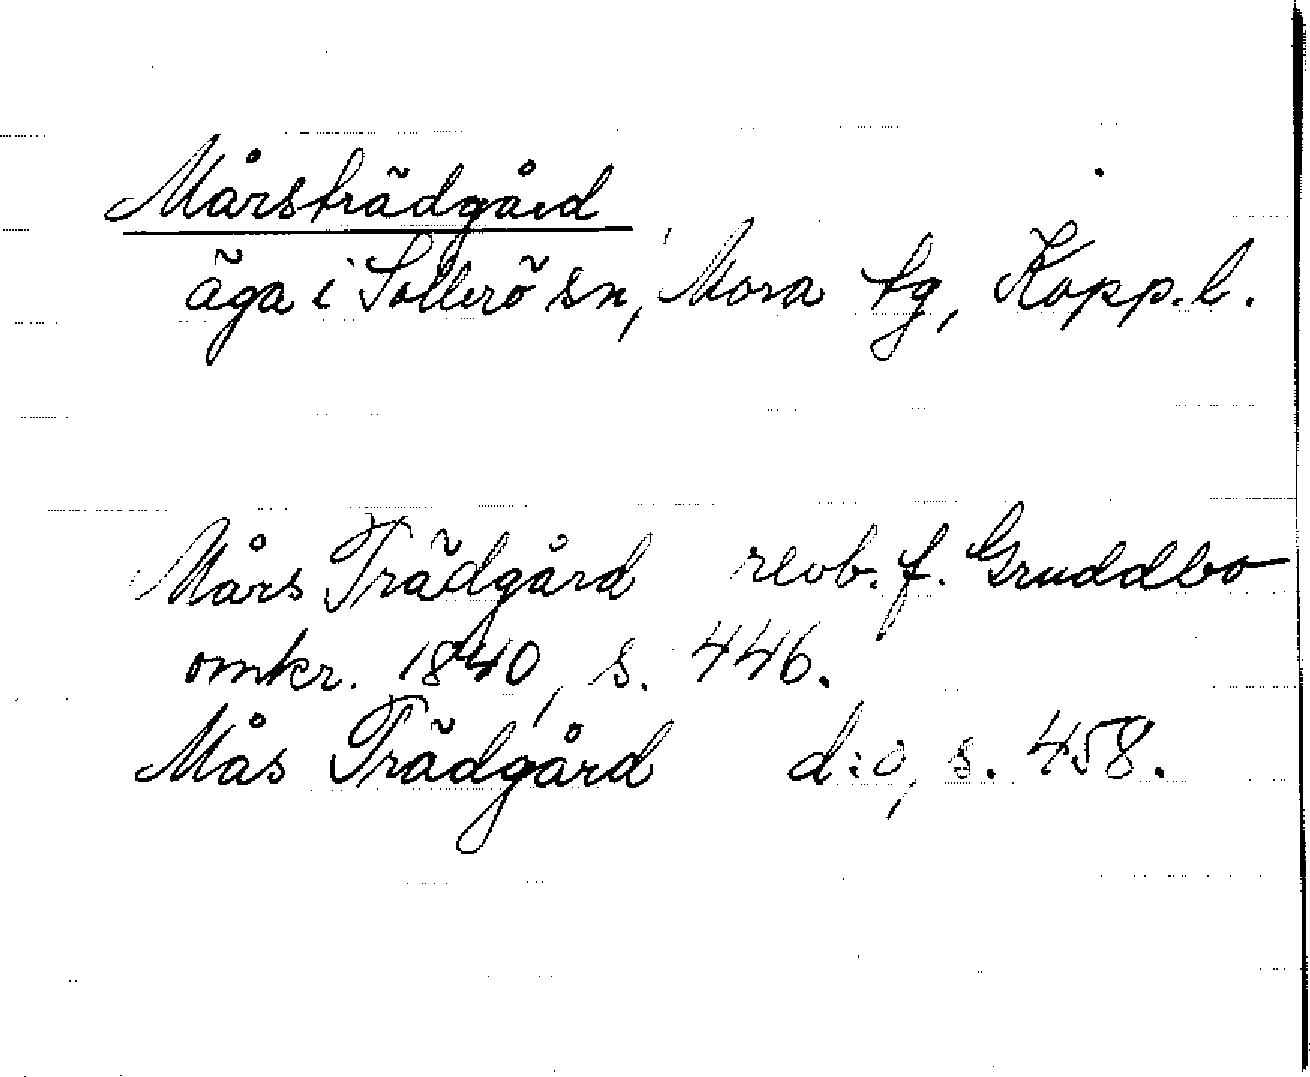 Mårsträdgård
äga i Sollerö sn, Mora tg, Kopp. l.
Mårs Trädgård revb. f. Gruddbo
omkr. 1840, s. 446.
Mås Trädgård d:o, s. 458.